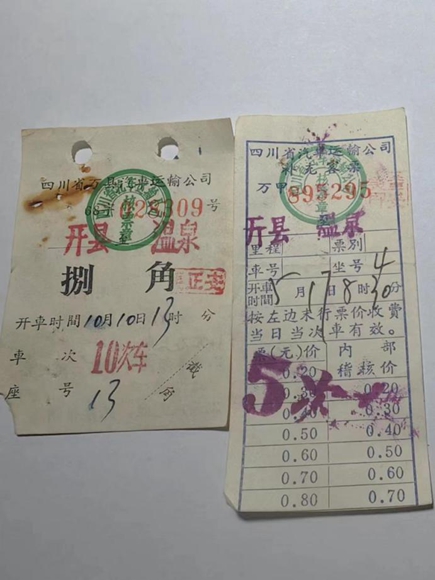 四川省万县汽车运输公司
028309号
开县 温泉
捌 角
正支
开车时间10月10日13时 分
车 次 10次车
座 号 13
四川省汽车运输公司
补充客票
万甲 895295
开县 温泉
里程 票别
车号 坐号 4
开车时间 5月17 8时30分
按左边末行票价收费
当日当次车有效。
票(元)价 内部稽核价
0.20
0.30 0.20
0.40 0.30
0.50 0.40
0.60 0.50
0.70 0.60
0.80 0.70
5次